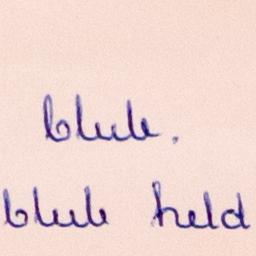 blub.
blub held